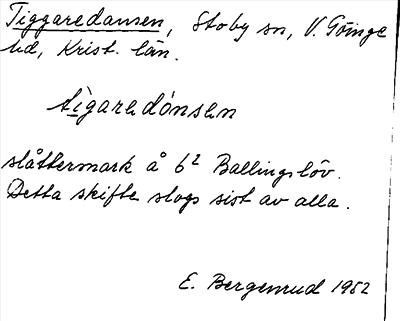 Tiggaredansen, Stoby sn, V. Göinge
hd, Krist. län.
tìgaredánsen
slåttermark å 6² Ballingslöv.
Detta skifte slogs sist av alla.
E. Bergenrud 1952